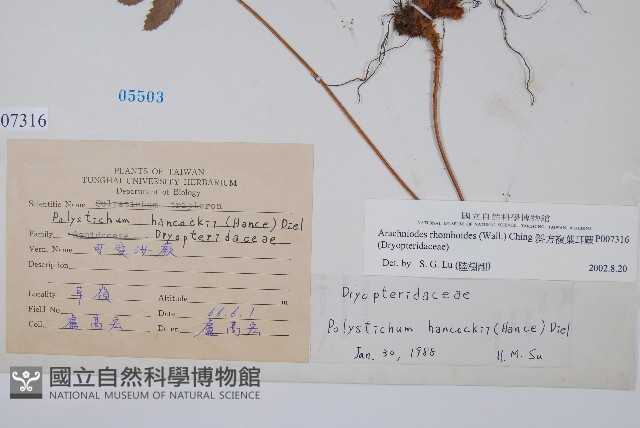 05503
07316
PLANTS OF TAIWAN
TUNGHAI UNIVERSITY HERBARIUM
Department of Biology
Scientific Name Polystichum
Polystichum hanceckii (Hance) Diel
Family Aspidaceae Dryopteridaceae
Vern. Name
Description
Locality Altitude m
Field No Date 66.6.1
Coll. 盧高宏 Determ 盧高宏
國立自然科學博物館
NATIONAL MUSEUM OF NATURAL SCIENCE, TAICHUNG, TAIWAN, R.O.CHINA
Arachniodes rhomboides (Wall.) Ching 斜方複葉耳蕨 P007316
(Dryopteridaceae)
Det. by S. G. Lu 2002.8.20
Dryopteridaceae
Polystichum hanceckii (Hance) Diel
Jan. 30, 1988 H. M. Su
國立自然科學博物館
NATIONAL MUSEUM OF NATURAL SCIENCE